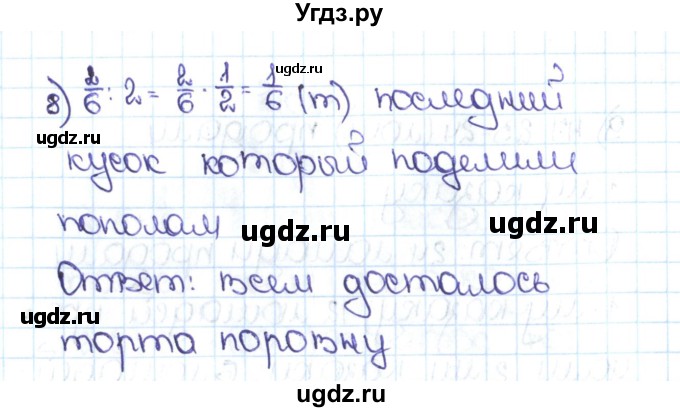 Угдз.ру
8) 2/6 : 2 = 2/6 · 1/2 = 1/6 (т) последний
ugdz.ru
ugdz.ru
кусок который поделили
пополам ugdz.ru ugdz.ru
Ответ: всем досталось
ugdz.ru
торта поровну
ugdz.ru
ugdz.ru